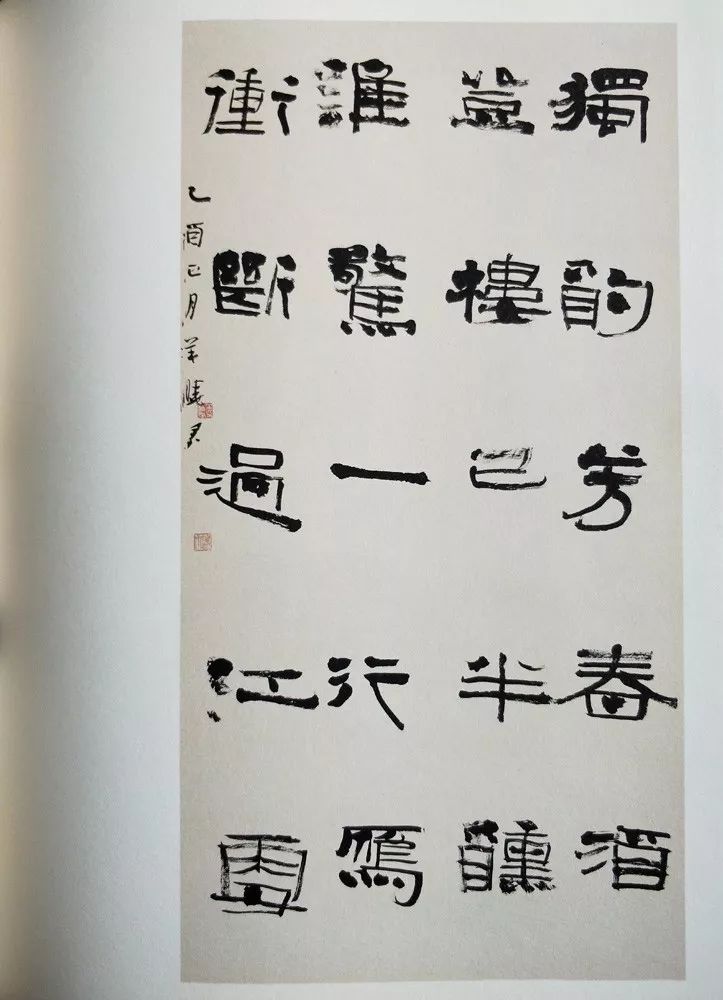 獨酌芳春酒
登樓已半醺
誰驚一行鴈
衝斷過江雲
乙酉正月羊曉君